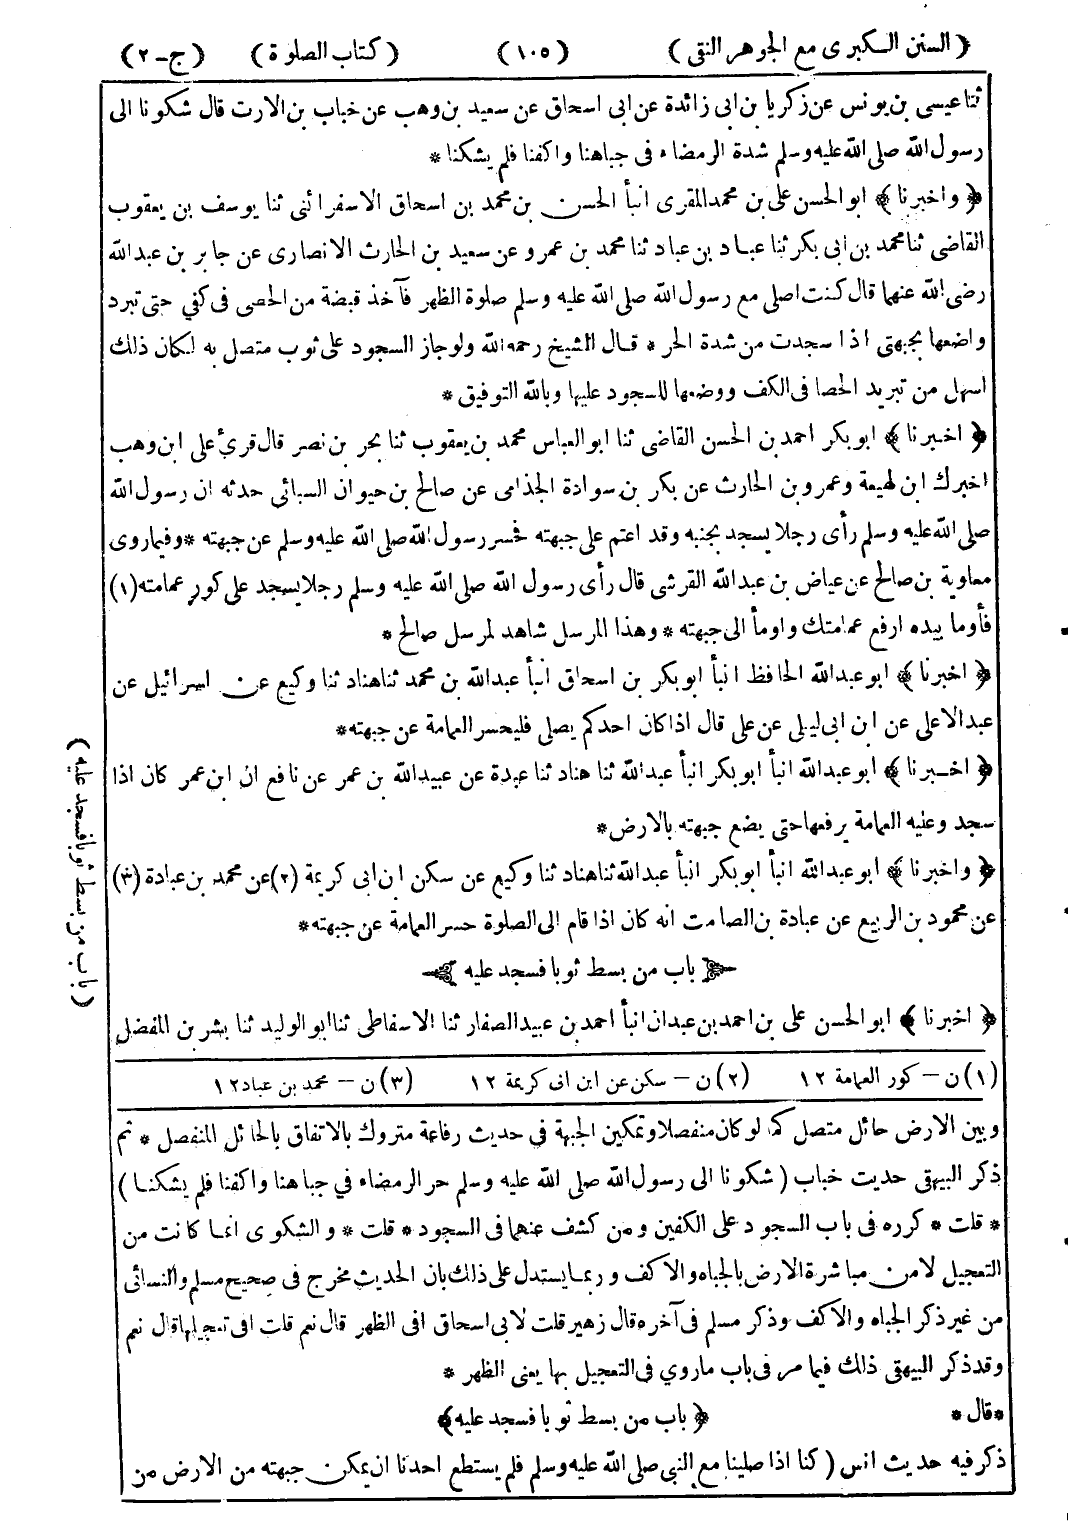 ( السنن الكبرى مع الجوهر النقى ) (١٠٥) ( كتاب الصلوة ) ( ج-٢ )
ثنا عيسى بن يونس عن زكريا بن ابى زائدة عن ابى اسحاق عن سعيد بن وهب عن خباب بن الارت قال شكونا الى
رسول الله صلى الله عليه وسلم شدة الرمضاء فى جباهنا واكفنا فلم يشكنا *
﴿ واخبرنا ﴾ ابو الحسن على بن محمد المقرى انبأ الحسن بن محمد بن اسحاق الاسفرائنى ثنا يوسف بن يعقوب
القاضى ثنا محمد بن ابى بكر ثنا عباد بن عباد ثنا محمد بن عمرو عن سعيد بن الحارث الانصارى عن جابر بن عبد الله
رضى الله عنهما قال كنت اصلى مع رسول الله صلى الله عليه وسلم صلوة الظهر فآخذ قبضة من الحصى فى كفي حتى تبرد
واضعها بجبهتى اذا سجدت من شدة الحر * قال الشيخ رحمه الله ولو جاز السجود على ثوب متصل به لكان ذلك
اسهل من تبريد الحصا فى الكف ووضعها للسجود عليها وبالله التوفيق *
﴿ اخبرنا ﴾ ابو بكر احمد بن الحسن القاضى ثنا ابو العباس محمد بن يعقوب ثنا بحر بن نصر قال قرئ على ابن وهب
اخبرك ابن لهيعة وعمرو بن الحارث عن بكر بن سوادة الجذامى عن صالح بن حيوان السبائى حدثه ان رسول الله
صلى الله عليه وسلم رأى رجلا يسجد بجنبه وقد اعتم على جبهته فحسر رسول الله صلى الله عليه وسلم عن جبهته * وفيما روى
معاوية بن صالح عن عياض بن عبد الله القرشى قال رأى رسول الله صلى الله عليه وسلم رجلا يسجد على كور عمامته (١)
فأوما بيده ارفع عمامتك واومأ الى جبهته * وهذا المرسل شاهد لمرسل صالح *
﴿ اخبرنا ﴾ ابو عبد الله الحافظ انبأ ابو بكر بن اسحاق انبأ عبد الله بن محمد ثنا هناد ثنا وكيع عن اسرائيل عن
عبد الاعلى عن ابن ابى ليلى عن على قال اذا كان احدكم يصلى فليحسر العمامة عن جبهته *
﴿ اخبرنا ﴾ ابو عبد الله انبأ ابو بكر انبأ عبد الله ثنا هناد ثنا عبدة عن عبيد الله بن عمر عن نافع ان ابن عمر كان اذا
سجد وعليه العمامة يرفعها حتى يضع جبهته بالارض *
﴿ واخبرنا ﴾ ابو عبد الله انبأ ابو بكر انبأ عبد الله ثنا هناد ثنا وكيع عن سكن ابن ابى كريمة (٢) عن محمد بن عبادة (٣)
عن محمود بن الربيع عن عبادة بن الصامت انه كان اذا قام الى الصلوة حسر العمامة عن جبهته *
﴿ باب من بسط ثوبا فسجد عليه ﴾
﴿ اخبرنا ﴾ ابو الحسن على بن احمد بن عبدان انبأ احمد بن عبيد الصفار ثنا الاسفاطى ثنا ابو الوليد ثنا بشر بن المفضل
( باب من بسط ثوبا فسجد عليه )
(١) ن - كور العمامة ١٢ (٢) ن - سكن عن ابن ابى كريمة ١٢ (٣) ن - محمد بن عباد ١٢
وبين الارض حائل متصل كما لو كان منفصلا وتمكين الجبهة فى حديث رفاعة متروك بالاتفاق بالحائل المنفصل * ثم
ذكر البيهقى حديث خباب ( شكونا الى رسول الله صلى الله عليه وسلم حر الرمضاء في جباهنا واكفنا فلم يشكنا )
* قلت * كرره فى باب السجود على الكفين ومن كشف عنهما فى السجود * قلت * والشكوى انما كانت من
التعجيل لا من مباشرة الارض بالجباه والاكف وربما يستدل على ذلك بان الحديث مخرج فى صحيح مسلم والنسائى
من غير ذكر الجباه والاكف وذكر مسلم فى آخره قال زهير قلت لابى اسحاق افى الظهر قال نعم قلت افى تعجيلها قال نعم
وقد ذكر البيهقى ذلك فيما مر فى باب ماروي فى التعجيل بها يعنى الظهر *
* قال * ﴿ باب من بسط ثوبا فسجد عليه ﴾
ذكر فيه حديث انس ( كنا اذا صلينا مع النبي صلى الله عليه وسلم فلم يستطع احدنا ان يمكن جبهته من الارض من